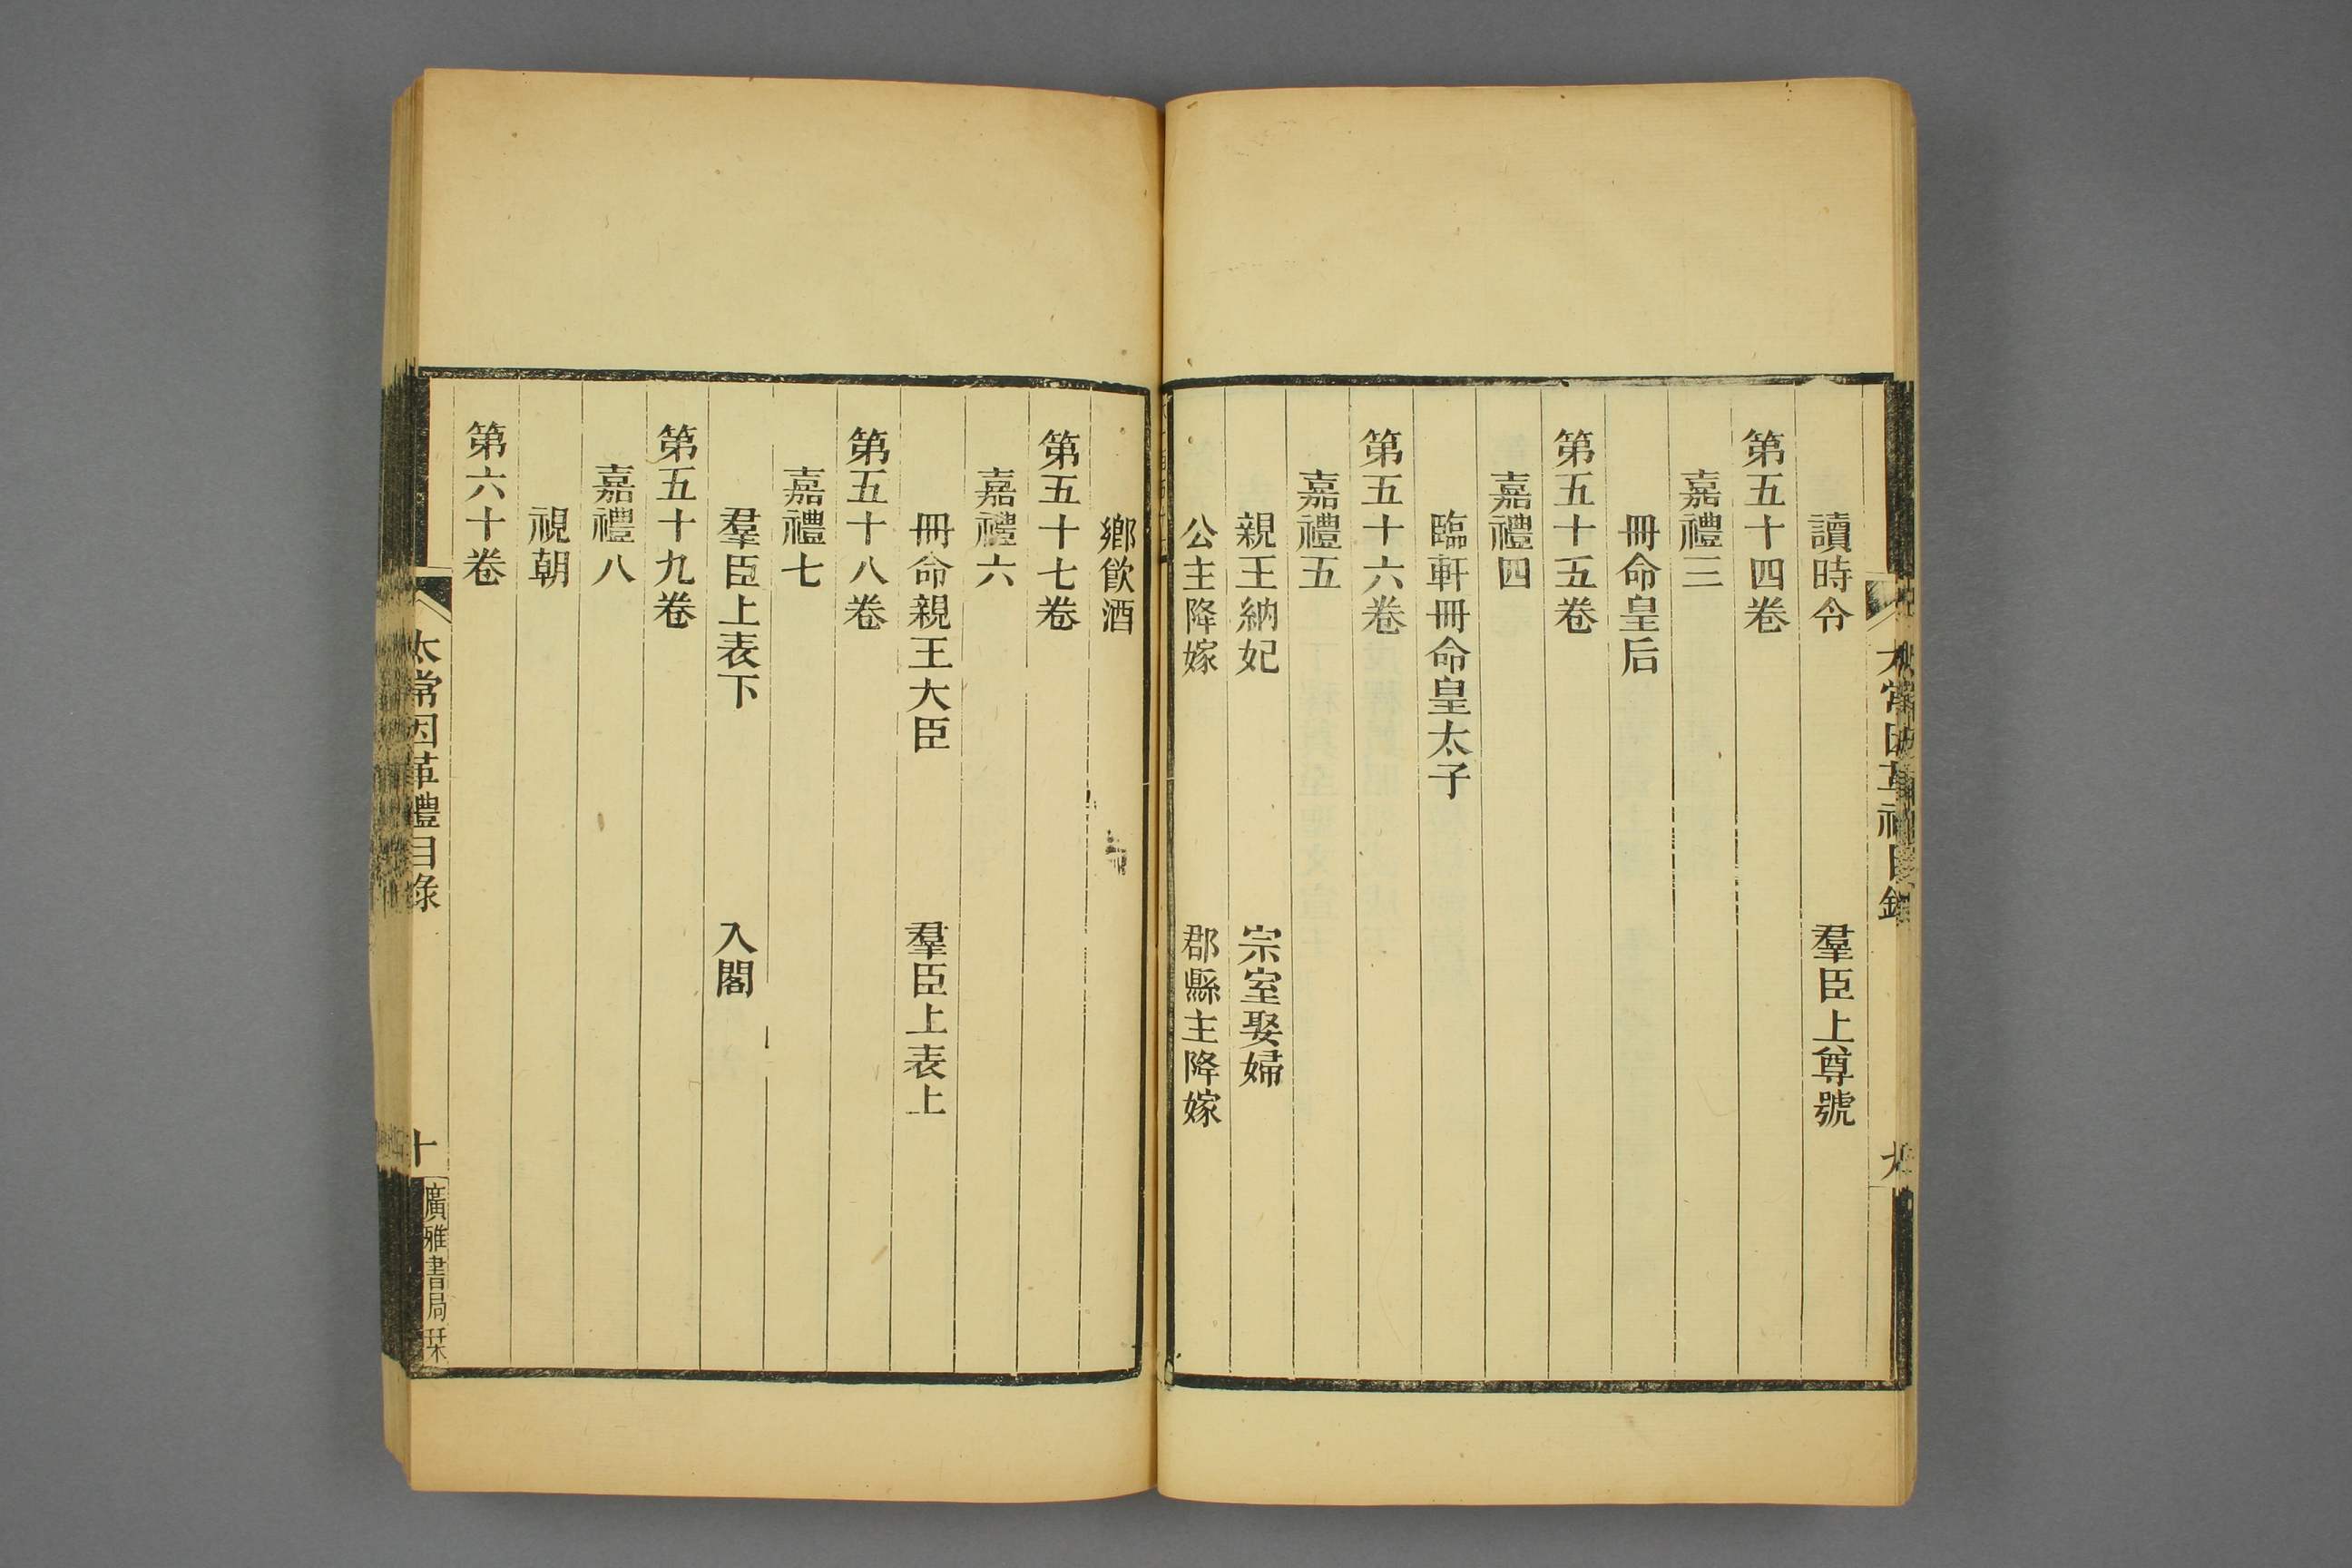 讀時令　羣臣上尊號
第五十四卷
嘉禮三
冊命皇后
第五十五卷
嘉禮四
臨軒冊命皇太子
第五十六卷
嘉禮五
親王納妃　宗室娶婦
公主降嫁　郡縣主降嫁
鄉飲酒
第五十七卷
嘉禮六
冊命親王大臣　羣臣上表上
第五十八卷
嘉禮七
羣臣上表下　入閣
第五十九卷
嘉禮八
視朝
第六十卷
太常因革禮目錄　十
廣雅書局栞